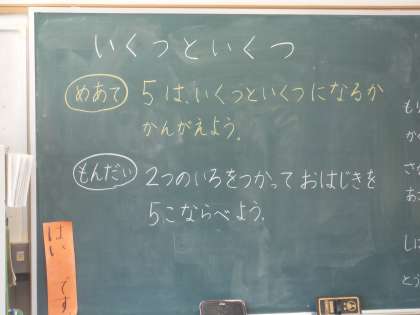 いくつといくつ
めあて 5は、いくつといくつになるか
かんがえよう。
もんだい 2つのいろをつかっておはじきを
5こならべよう。
はい です